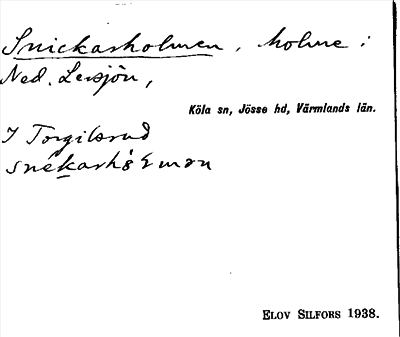 Snickarholmen, holme i
Ned. Lersjön,
Köla sn, Jösse hd, Värmlands län.
I Torgilsrud
Elov Silfors 1938.